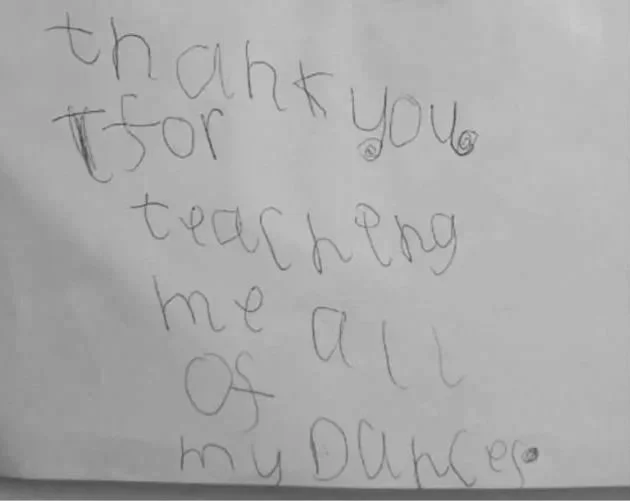 thank you.
for
teacheng
me all
Of
my Dances.